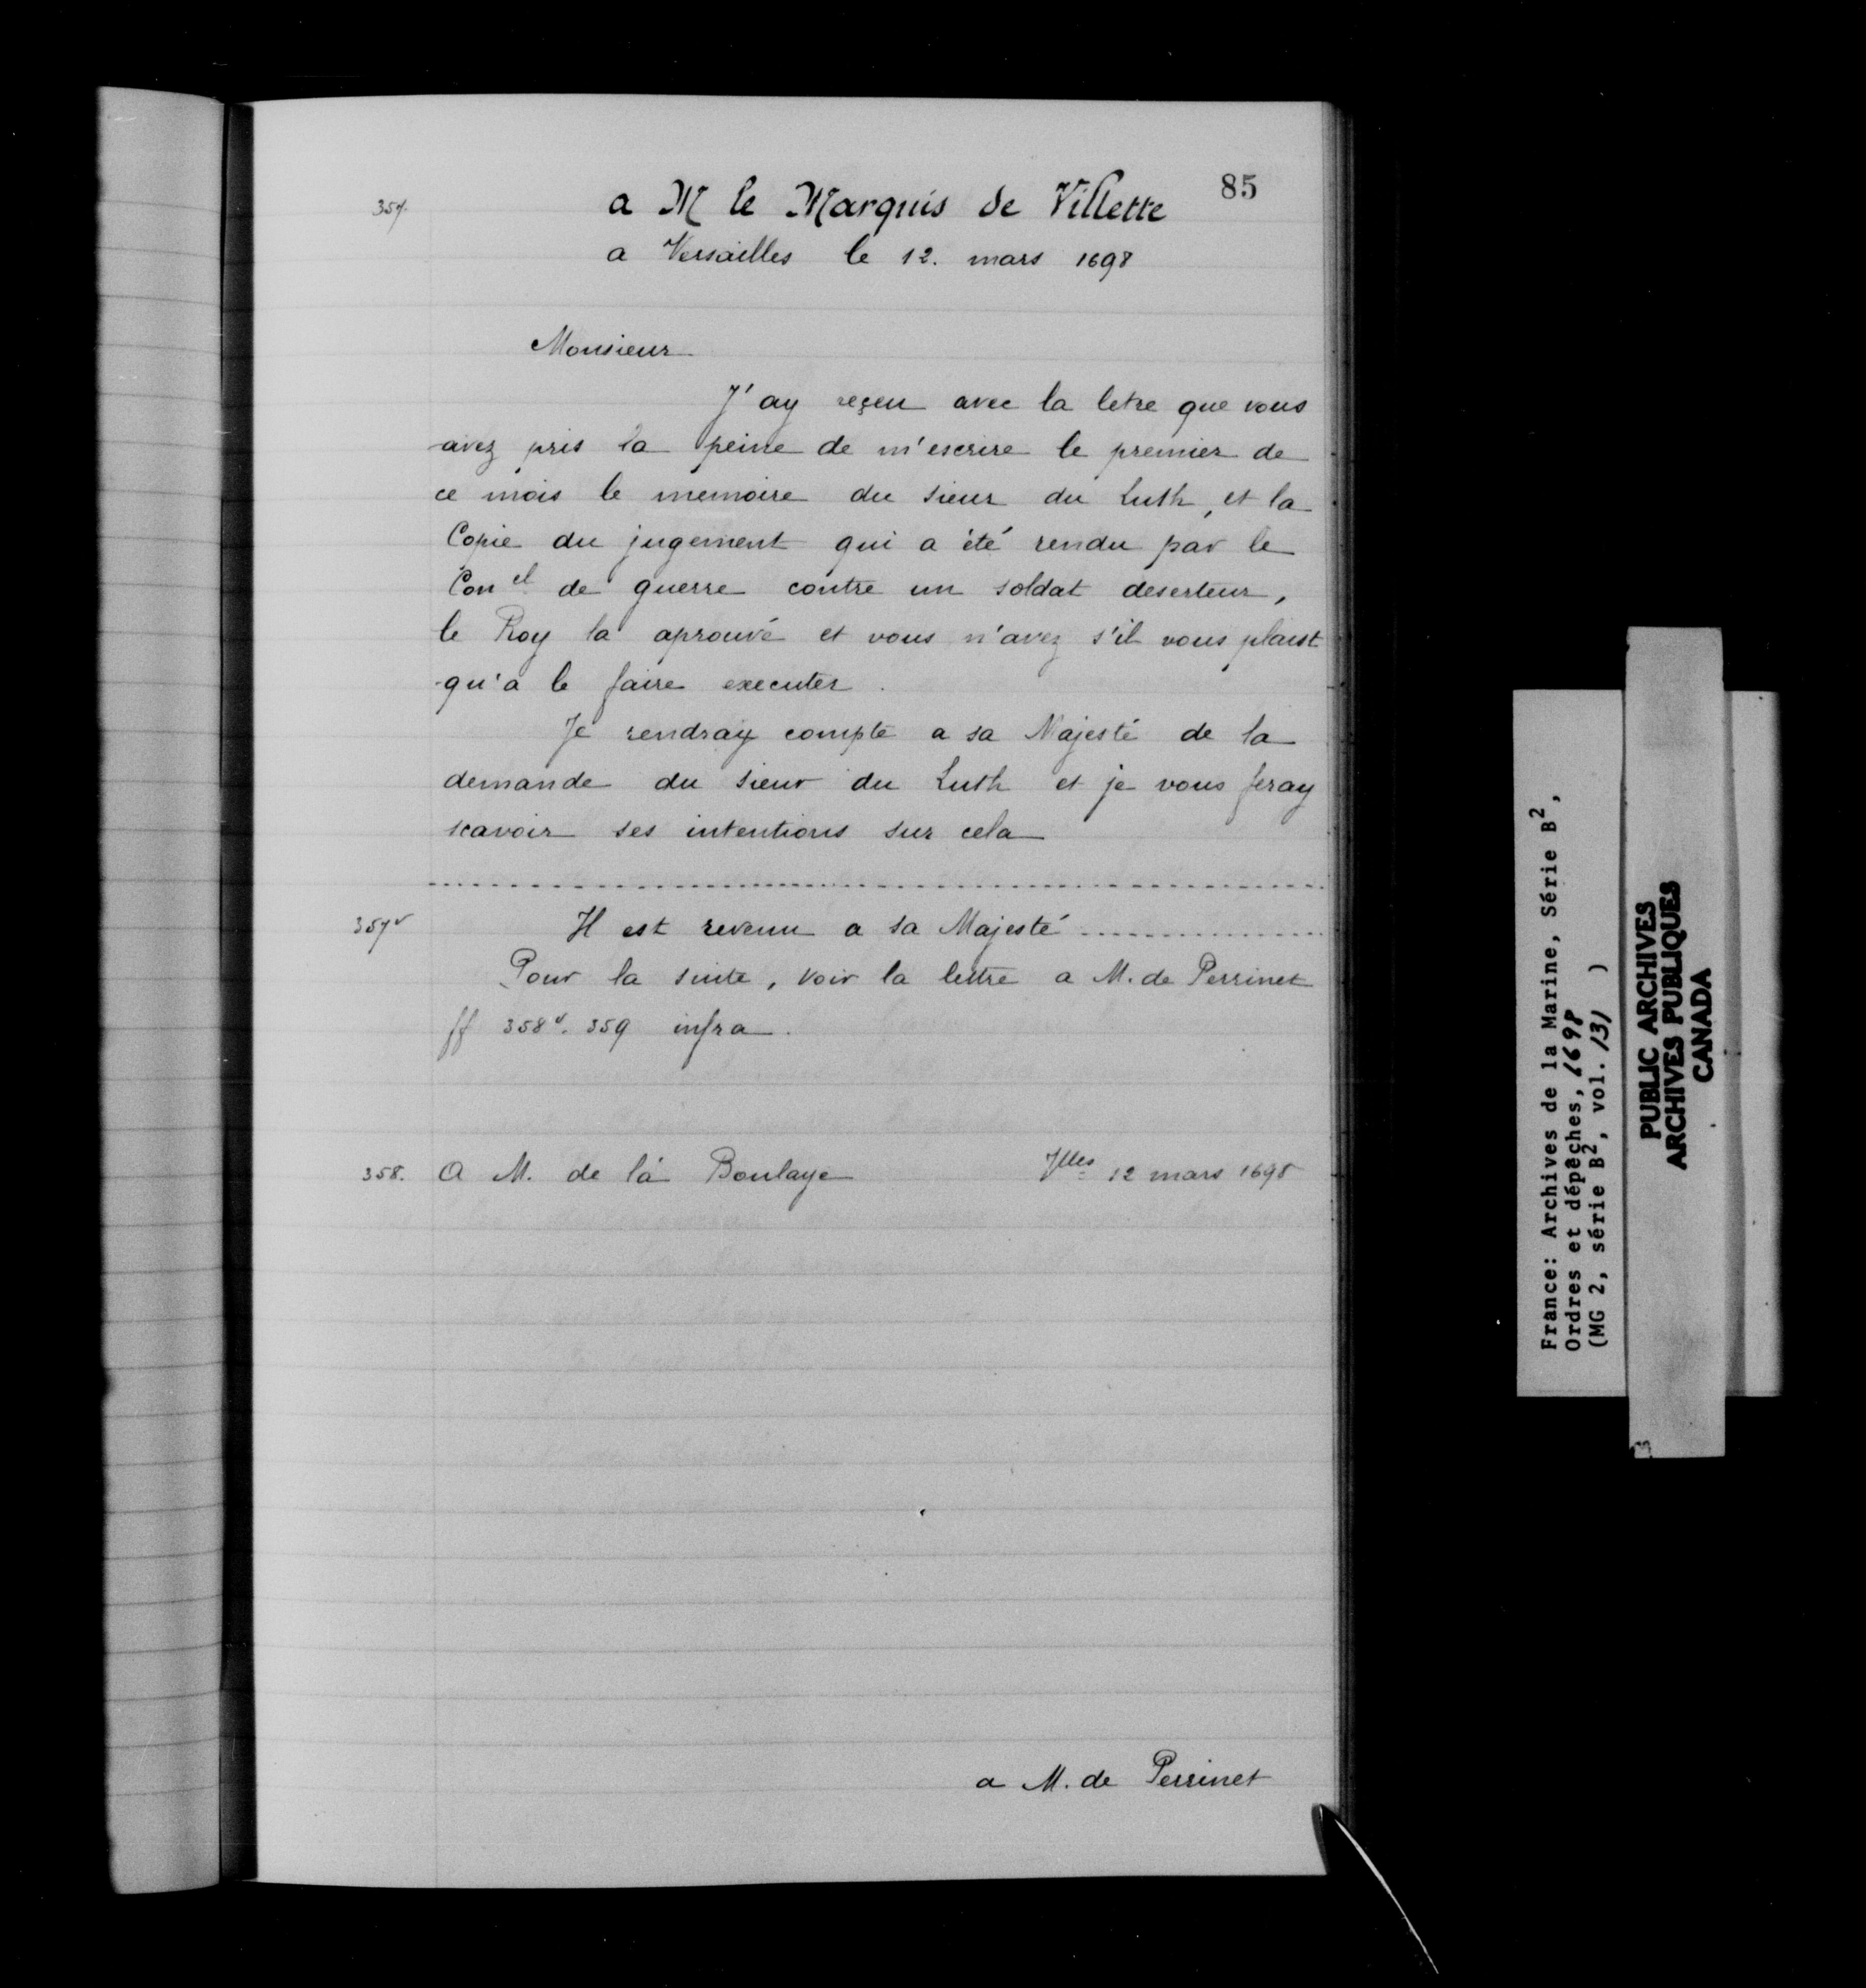 85
357. a M le Marquis de Villette
a Versailles le 12. mars 1698
Monsieur
J'ay reçeu avec la letre que vous
avez pris la peine de m'escrire le premier de
ce mois le memoire du sieur du Luth, et la
Copie du jugement qui a été rendu par le
Con el de guerre contre un soldat deserteur,
le Roy la aprouvé et vous n'avez s'il vous plaist
qu'a le faire executer.
Je rendray compte a sa Majesté de la
demande du sieur du Luth et je vous feray
scavoir ses intentions sur cela
357v Il est revenu a sa Majesté ................
Pour la suite, voir la lettre a M. de Perrinet
ff 358v. 359 infra.
358. A M. de la Boulaye Vlles 12 mars 1698
a M. de Perrinet
France: Archives de la Marine, Série B2,
Ordres et dépêches, 1698
(MG 2, série B2, vol. 131 )
PUBLIC ARCHIVES
ARCHIVES PUBLIQUES
CANADA